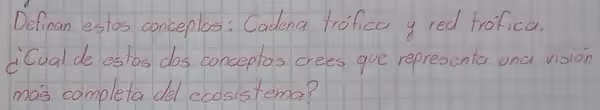 Definan estos conceptos: Cadena trófica y red trófica.
¿Cual de estos dos conceptos crees que representa una visión
más completa del ecosistema?